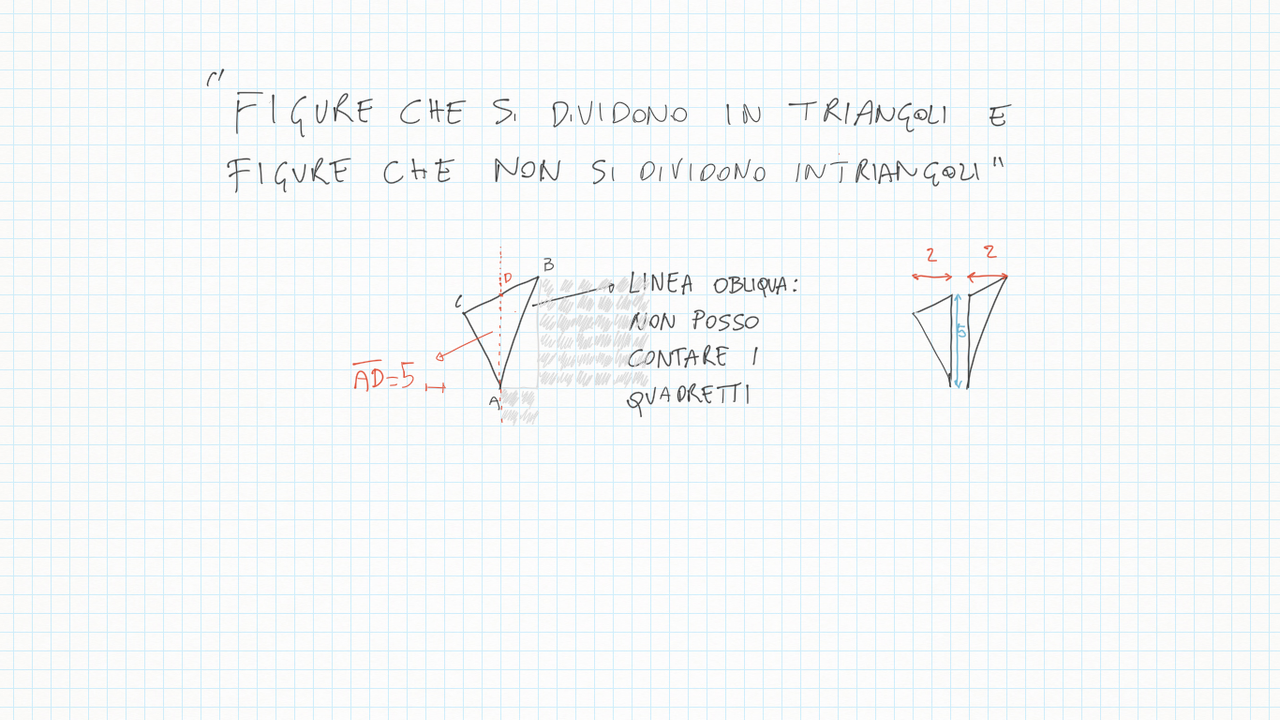 "FIGURE CHE SI DIVIDONO IN TRIANGOLI E
FIGURE CHE NON SI DIVIDONO IN TRIANGOLI"
B
D
C
A
AD=5
LINEA OBLIQUA:
NON POSSO
CONTARE I
QUADRETTI
2 2
5